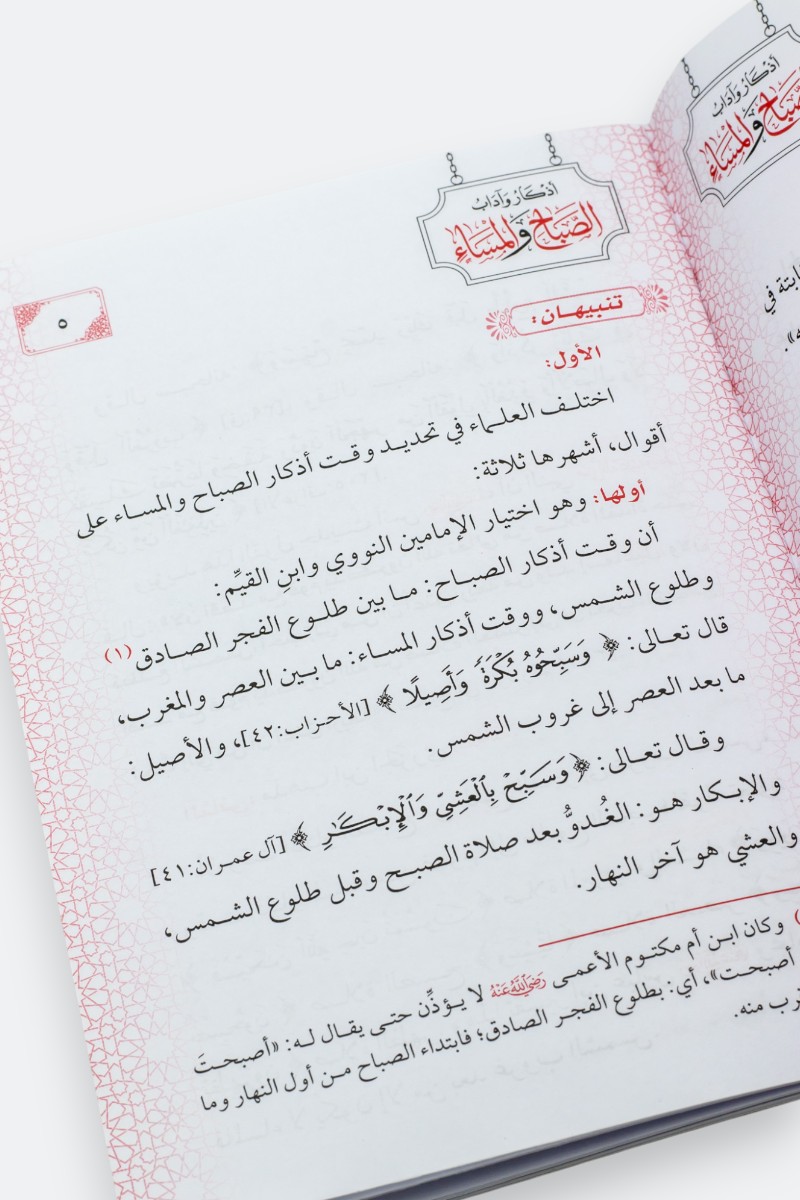 أذكار وآداب
الصَّباح والمسَاء
ابتة في
أذكار وآداب
الصَّباح والمسَاء
٥
تنبيهان:
الأول:
اختلف العلماء في تحديد وقت أذكار الصباح والمساء على
أقوال، أشهرها ثلاثة:
أولها: وهو اختيار الإمامين النووي وابنِ القيِّم:
أن وقت أذكار الصباح: ما بين طلوع الفجر الصادق(١)
وطلوع الشمس، ووقت أذكار المساء: ما بين العصر والمغرب،
قال تعالى: ﴿ وَسَبِّحُوهُ بُكْرَةً وَأَصِيلًا ﴾ [الأحزاب:٤٢]، والأصيل:
ما بعد العصر إلى غروب الشمس.
وقال تعالى: ﴿ وَسَبِّحْ بِٱلْعَشِيِّ وَٱلْإِبْكَٰرِ ﴾ [آل عمران:٤١]
والإبكار هو: الغُدوُّ بعد صلاة الصبح وقبل طلوع الشمس،
والعشي هو آخر النهار.
وكان ابن أم مكتوم الأعمى رَضِيَ اللَّهُ عَنْهُ لا يؤذِّن حتى يقال له: «أصبحتَ
أصبحت»، أي: بطلوع الفجر الصادق؛ فابتداء الصباح من أول النهار وما
رب منه.